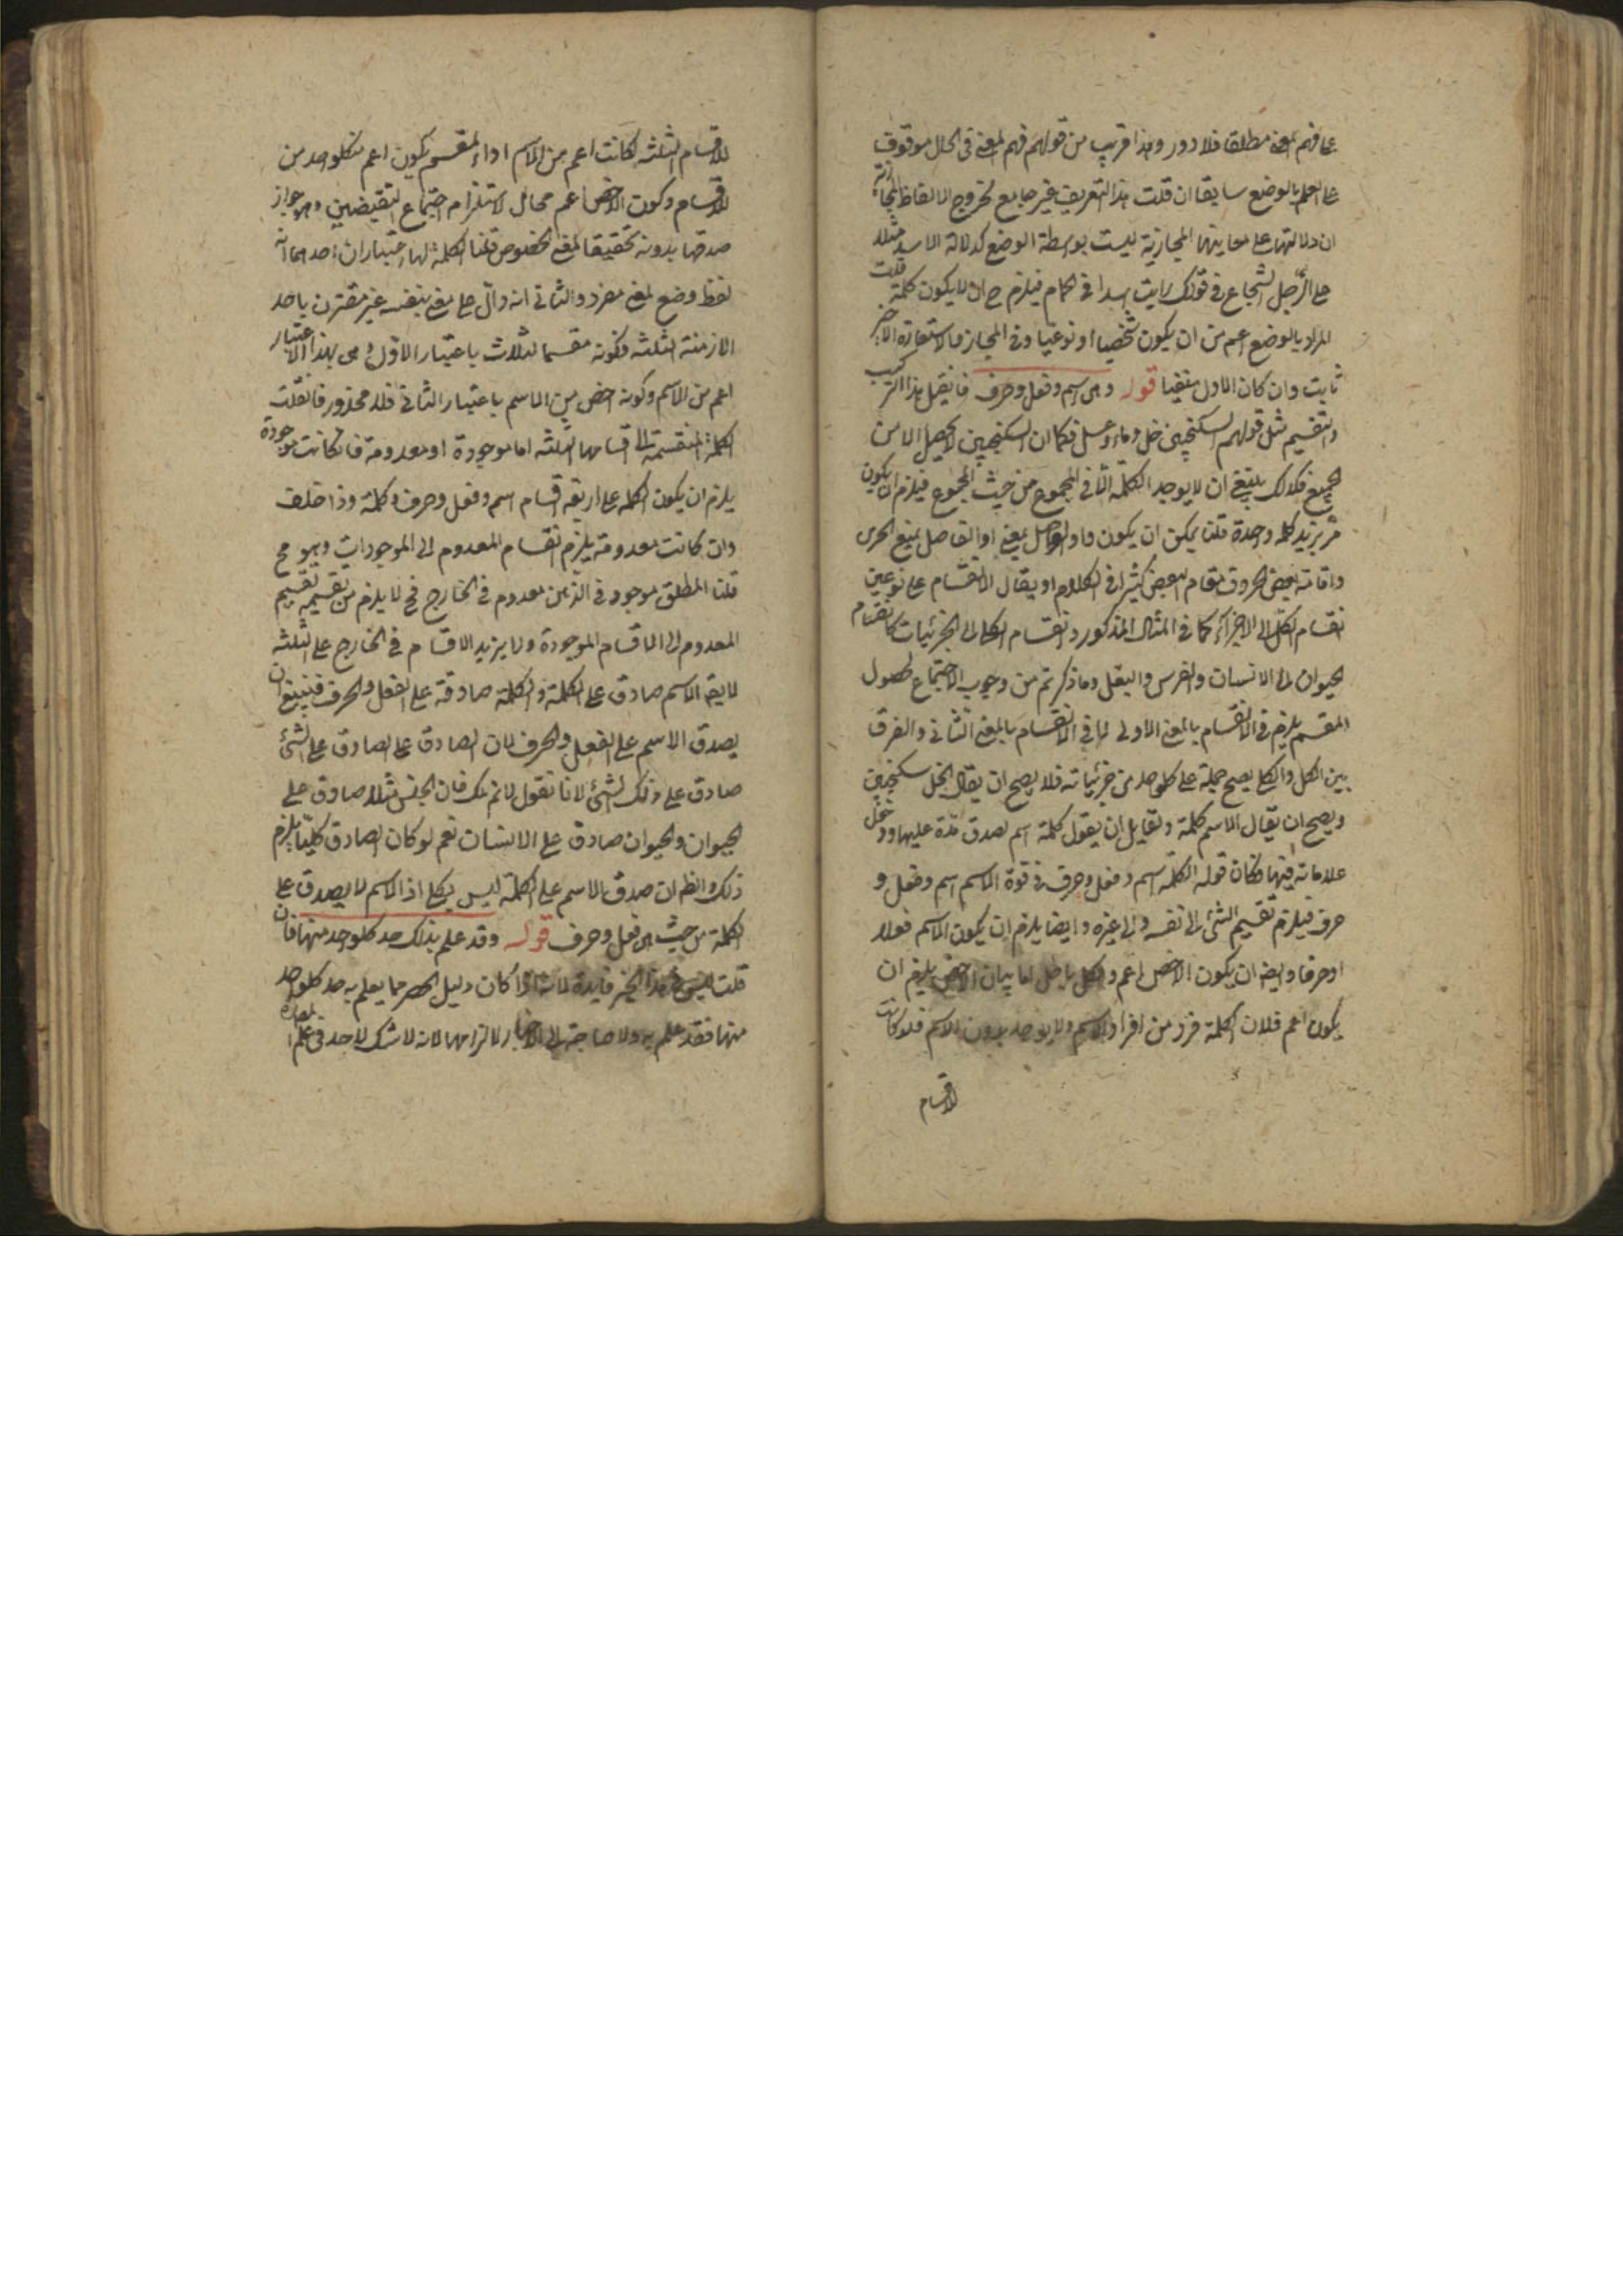 على فهم المعنى مطلقا فلا دور وهذا قريب من قولهم فهم المعنى في الحال موقوف
على العلم بالوضع سابقا ان قلت هذا التعريف غير جامع لخروج الالفاظ المجازية
ان دلالتها على معاينها المجازية ليست بواسطة الوضع كدلالة الاسد مثلا
على الرجل الشجاع في قولك رايت اسدا في الحمام فيلزم ح ان لا يكون كلمة قلت
المراد بالوضع اعم من ان يكون شخصيا او نوعيا وفي المجاز والاستعارة الاخير
ثابت وان كان الاول منفيا قوله وهى اسم وفعل وحرف فان قيل هذا التركيب
والتقسيم مثل قولهم السكنجبين خل وماء وعسل فكما ان السكنجبين لا يحصل الا من
الجميع فكذلك ينبغي ان لا يوجد الكلمة الا في المجموع من حيث المجموع فيلزم ان يكون
مر بزيد كلمة واحدة قلنا يمكن ان يكون واو الواصل بمعنى او الفاصل بمنع
واقامة بعض الحروف مقام البعض كثير في الكلام او يقال الانقسام على نوعين
انقسام الكل الى الاجزاء كما في المثال المذكور وانقسام الكلي الى الجزئيات كانقسام
الحيوان الى الانسان والفرس والبغل وما ذكرتم من وجوب الاجتماع لحصول
المقسم يلزم في الانقسام بالمعنى الاول لا في الانقسام بالمعنى الثاني والفرق
بين الكل والكلي يصح حمله على كلواحد من جزئياته فلا يصح ان يقال الخل سكنجبين
ويصح ان يقال الاسم كلمة ولقايل ان يقول كلمة اسم لصدق حده عليها ودخل
علاماته فيها فكان قوله الكلمة اسم وفعل وحرف في قوة الاسم اسم وفعل و
حرف فيلزم تقسيم الشئ الى نفسه والى غيره وايضا يلزم ان يكون الاسم فعلا
او حرفا وايضا ان يكون الاخص اعم والكل باطل اما بيان الاخص يلزم ان
يكون اعم فلان الكلمة فرد من افراد الاسم ولا يوجد بدون الاسم فلو كانت
الاقسام
للاقسام الثلثة لكانت اعم من الاسم اذ المقسم يكون اعم من كلواحد من
الاقسام وكون الاخص اعم محال لاستلزام اجتماع النقيضين وهو جواز
صدقها بدونه تحقيقا لمعنى الخصوص قلنا الكلمة لها اعتباران احدهما انه
لفظ وضع لمعنى مفرد والثاني انه دال على معنى بنفسه غير مقترن باحد
الازمنة الثلثة فكونه مقسما لثلاث باعتبار الاول وهى بهذا الاعتبار
اعم من الاسم وكونه اخص من الاسم باعتبار الثاني فلا محذور فان قلت
الكلمة المنقسمة الى اقسامها الثلثة اما موجودة او معدومة فان كانت موجودة
يلزم ان يكون الكلمة على اربعة اقسام اسم وفعل وحرف وكلمة وذا خلف
وان كانت معدومة يلزم انقسام المعدوم الى الموجودات وهو مح
قلنا المطلق موجود في الذهن معدوم في الخارج فح لا يلزم من تقسيمه تقسيم
المعدوم الى الاقسام الموجودة ولا يزيد الاقسام في الخارج على الثلثة
لا يقال الاسم صادق على الكلمة والكلمة صادقة على الفعل والحرف فينبغي ان
يصدق الاسم على الفعل والحرف لان الصادق على الصادق على الشئ
صادق على ذلك الشئ لانا نقول لا نم ذلك فان الجنس مثلا صادق على
الحيوان والحيوان صادق على الانسان نعم لو كان الصادق كليا يلزم
ذلك والظ ان صدق الاسم على الكلمة ليس بكلي اذ الاسم لا يصدق على
الكلمة من حيث هى فعل وحرف قوله وقد علم بذلك حد كلواحد منها فان
قلت ليس في هذا الخبر فايدة لانه اذا كان دليل الحصر مما يعلم به حد كلواحد
منها فقد علم به ولا حاجة الى الاخبار لالتزامها لانه لا شك لاحد في علم